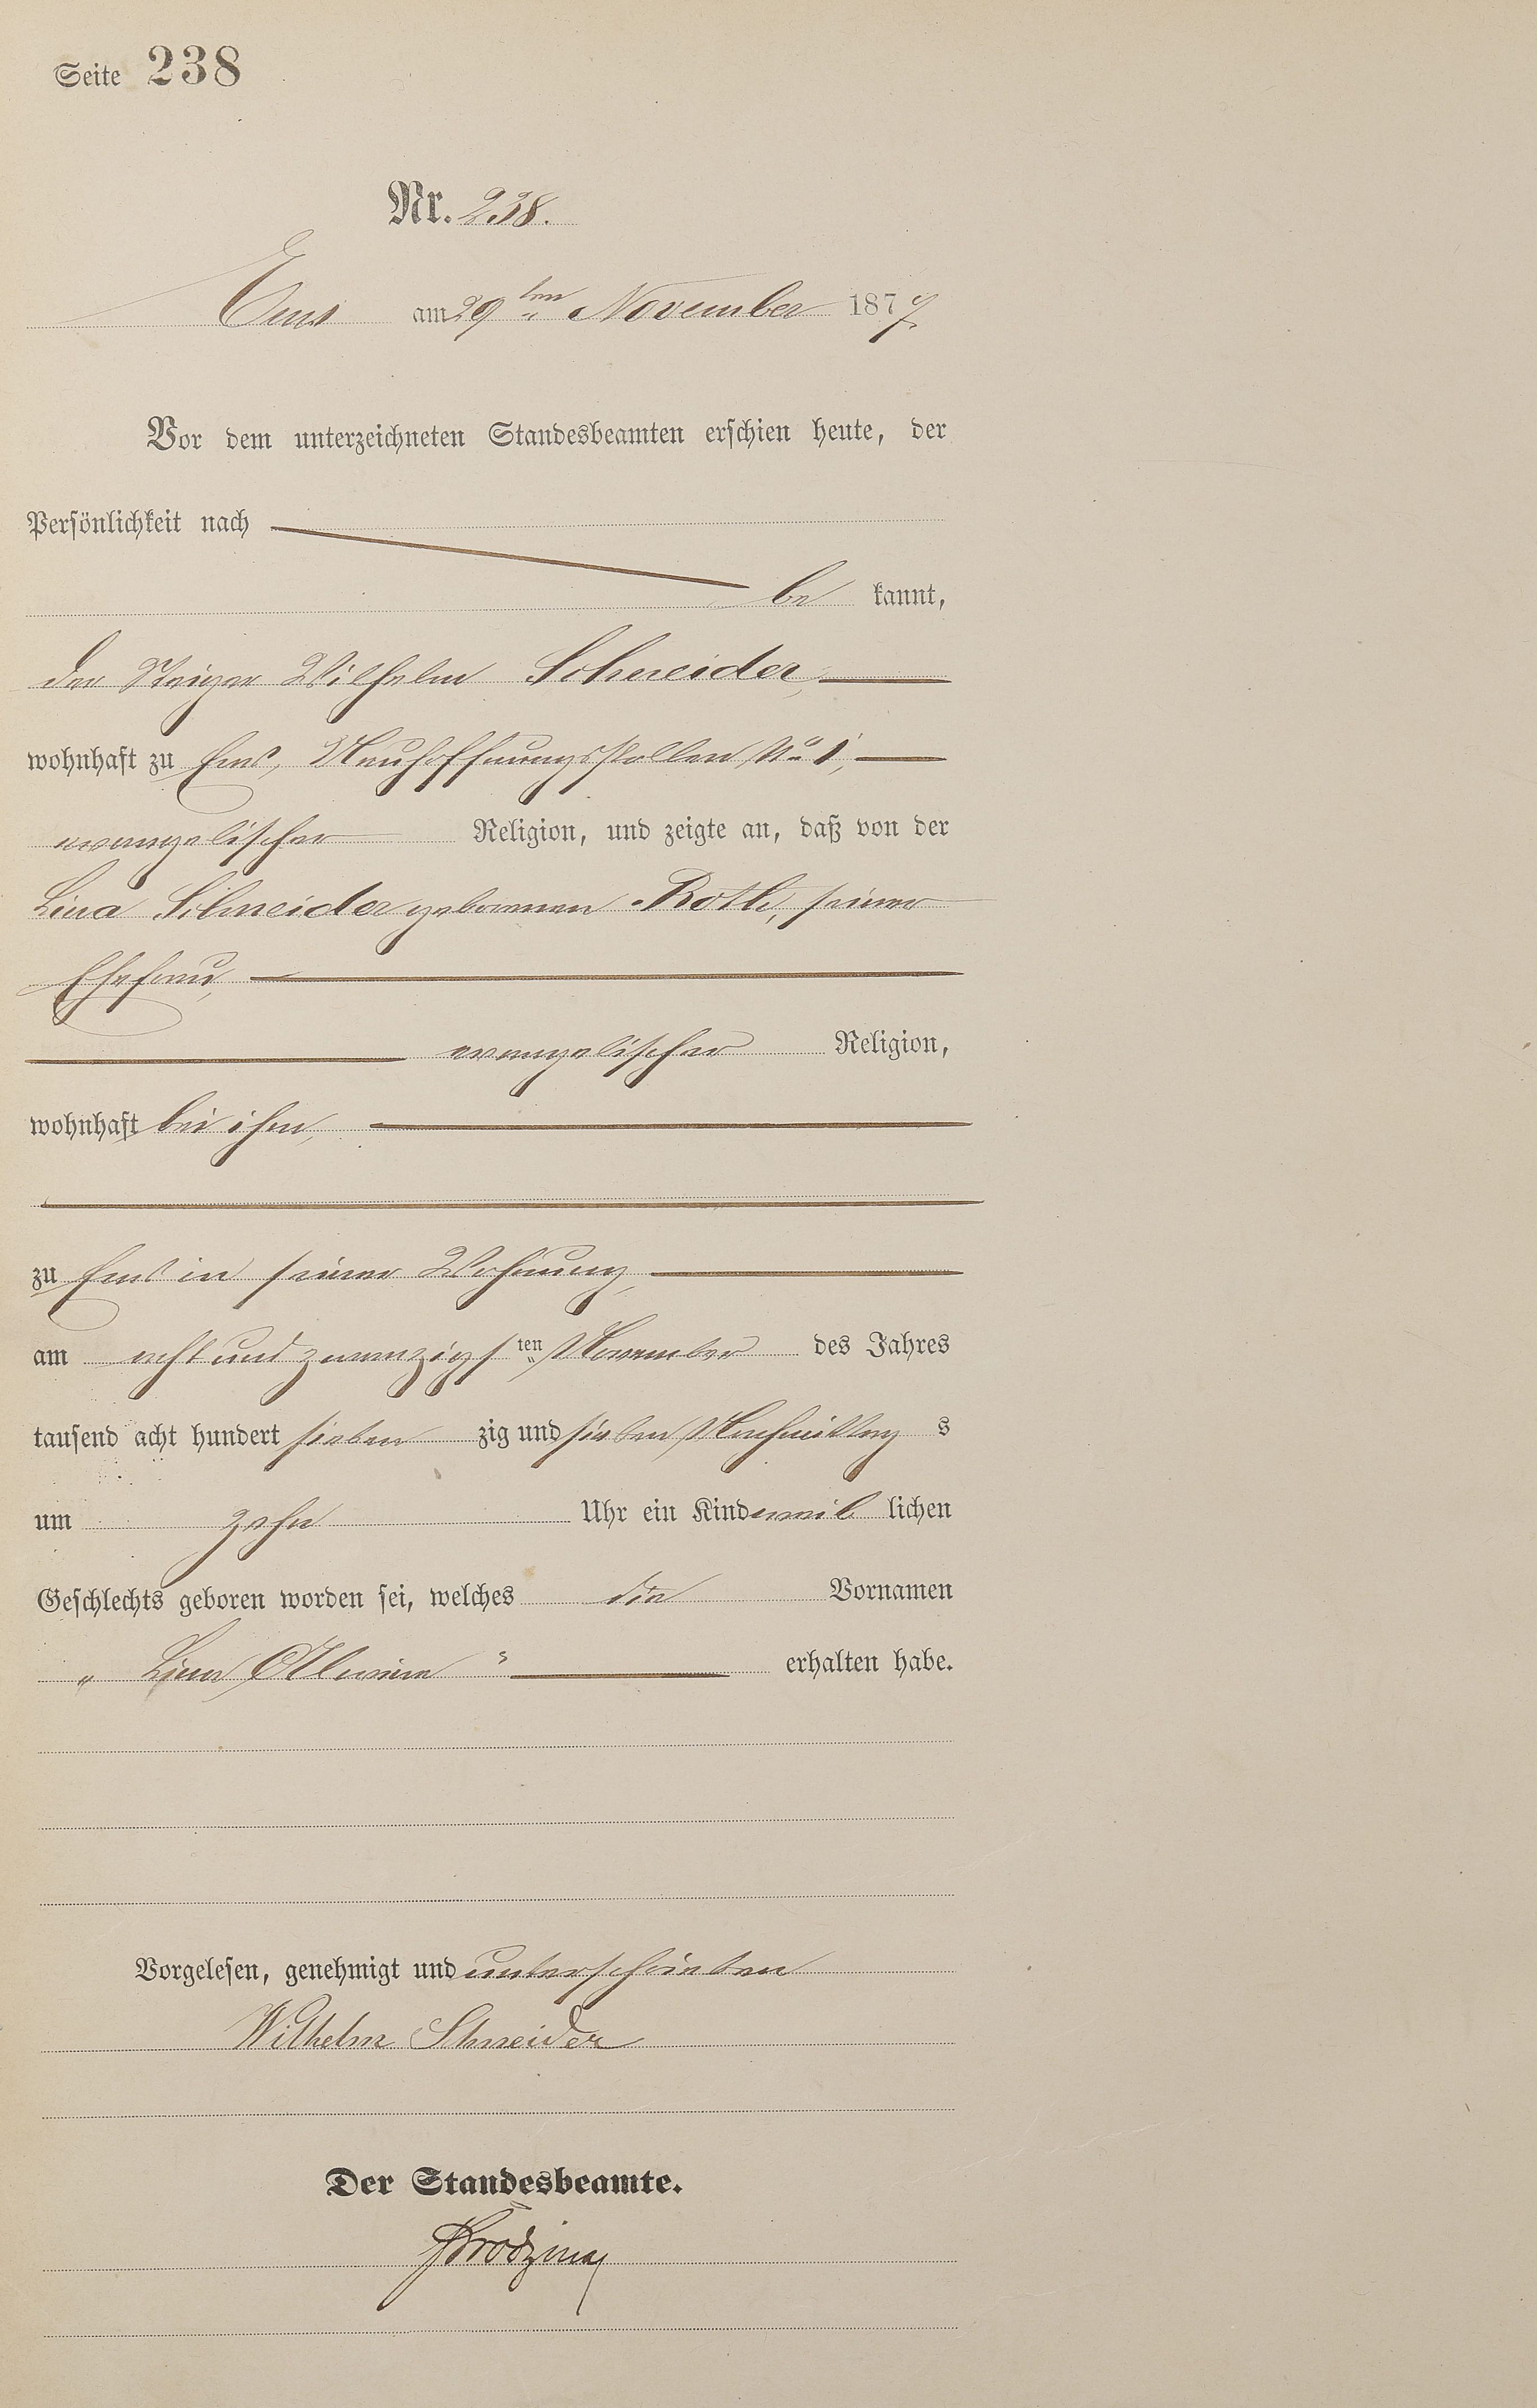 Seite 238
Nr. 238.
Ems am 29ten November 1877
Vor dem unterzeichneten Standesbeamten erschien heute, der
Persönlichkeit nach
be kannt,
der Steiger Wilhelm Schneider,
wohnhaft zu Ems, Neuhoffnungsstollen No 1,
evangelischer Religion, und zeigte an, daß von der
Lina Schneider geborenen Roth, seiner
Ehefrau,
evangelischer Religion,
wohnhaft bei ihm,
zu Ems in seiner Wohnung,
am acht und zwanzigsten November des Jahres
tausend acht hundert sieben zig und sieben Nachmittag s
um zehn Uhr ein Kind weib lichen
Geschlechts geboren worden sei, welches die Vornamen
„ Lina " erhalten habe.
Vorgelesen, genehmigt und unterschrieben
Wilhelm Schneider
Der Standesbeamte.